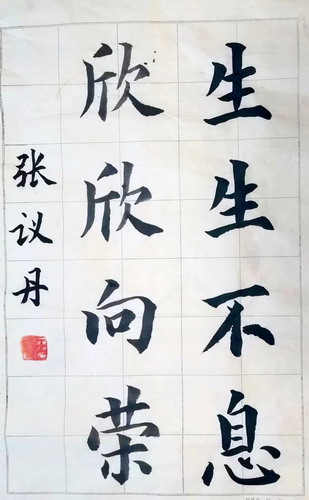 生生不息
欣欣向荣
张议丹